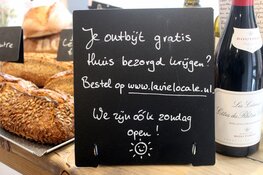 Je ontbijt gratis
thuis bezorgd krijgen?
Bestel op www.lavielocale.nl
We zijn óók zondag
open!
La Ciboise